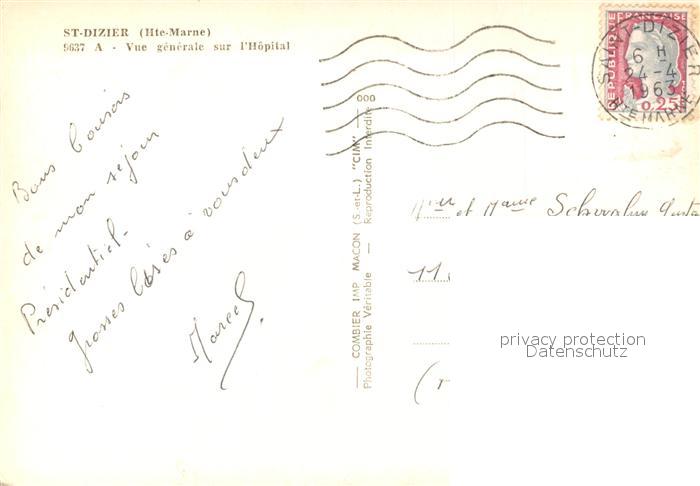 ST-DIZIER (Hte-Marne)
9637 A - Vue générale sur l'Hôpital
Bons baisers
de mon séjour
Présidentiel-
grosses bises à vous deux
Marcel
000
COMBIER IMP. MACON (S.-et-L.) "CIM"
Photographie Véritable - Reproduction Interdite
REPUBLIQUE FRANCAISE
0,25
ST-DIZIER
6 H
24-4
1963
HTE MARNE
et Mame
11
privacy protection
Datenschutz